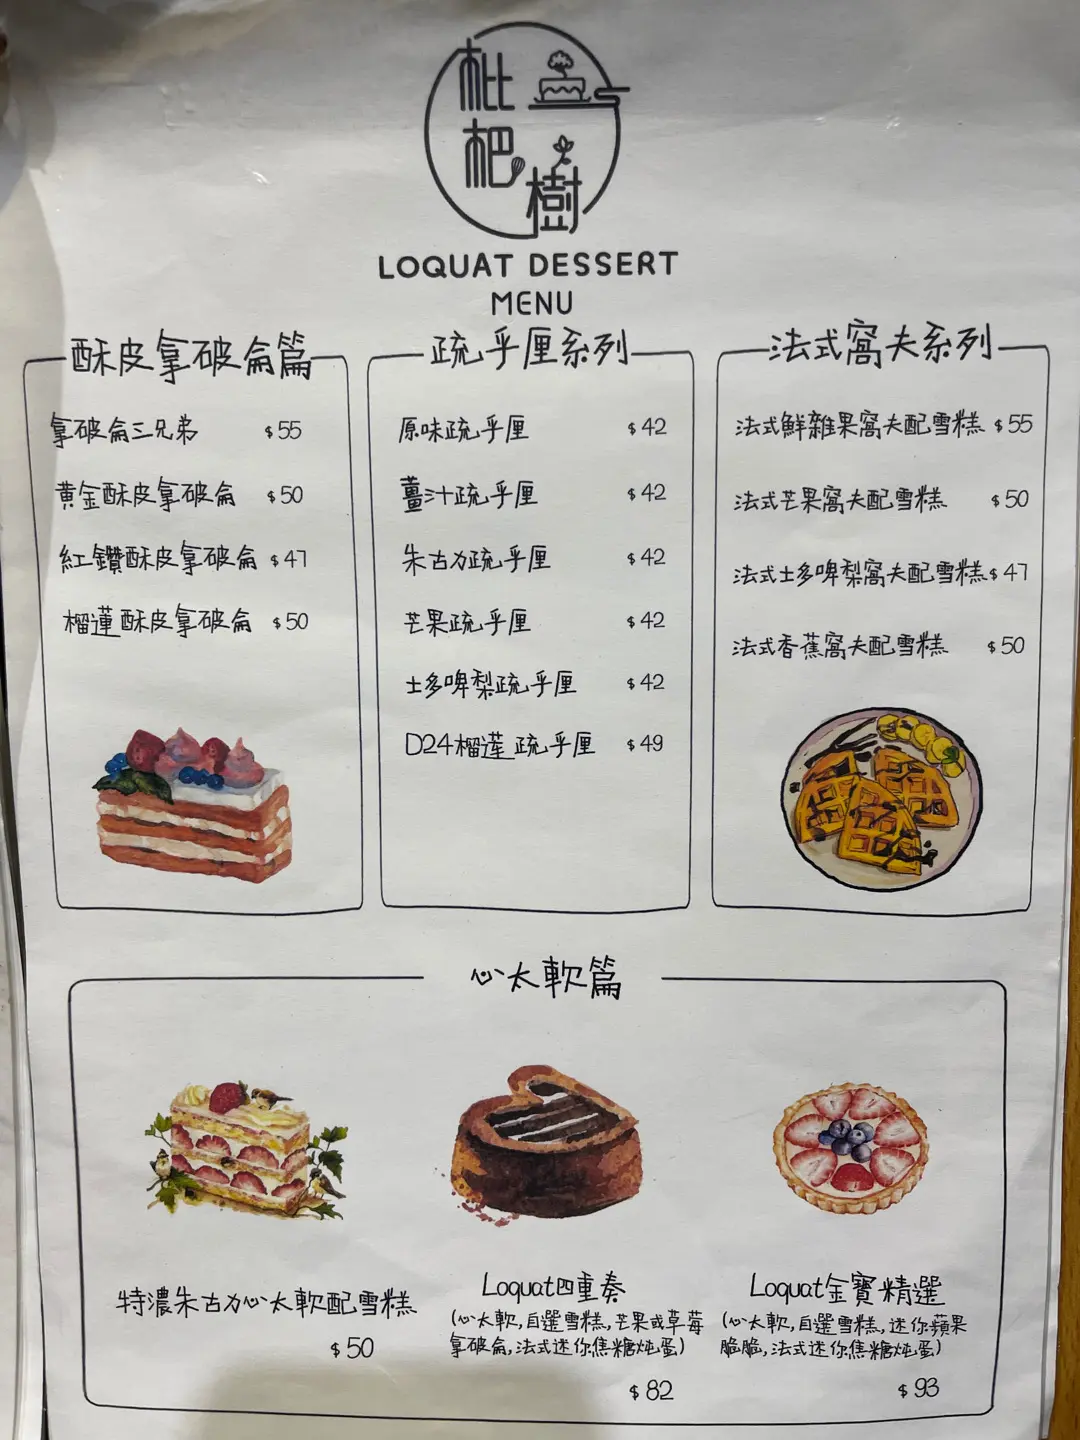 枇杷樹
LOQUAT DESSERT
MENU
酥皮拿破侖篇
拿破侖三兄弟 $55
黄金酥皮拿破侖 $50
紅鑽酥皮拿破侖 $47
榴蓮酥皮拿破侖 $50
疏乎厘系列
原味疏乎厘 $42
薑汁疏乎厘 $42
朱古力疏乎厘 $42
芒果疏乎厘 $42
士多啤梨疏乎厘 $42
D24榴莲疏乎厘 $49
法式窩夫系列
法式鮮雜果窩夫配雪糕 $55
法式芒果窩夫配雪糕 $50
法式士多啤梨窩夫配雪糕 $47
法式香蕉窩夫配雪糕 $50
心太軟篇
特濃朱古力心太軟配雪糕
$50
Loquat四重奏
(心太軟,自選雪糕,芒果或草莓
拿破侖,法式迷你焦糖炖蛋)
$82
Loquat金寶精選
(心太軟,自選雪糕,迷你蘋果
脆脆,法式迷你焦糖炖蛋)
$93